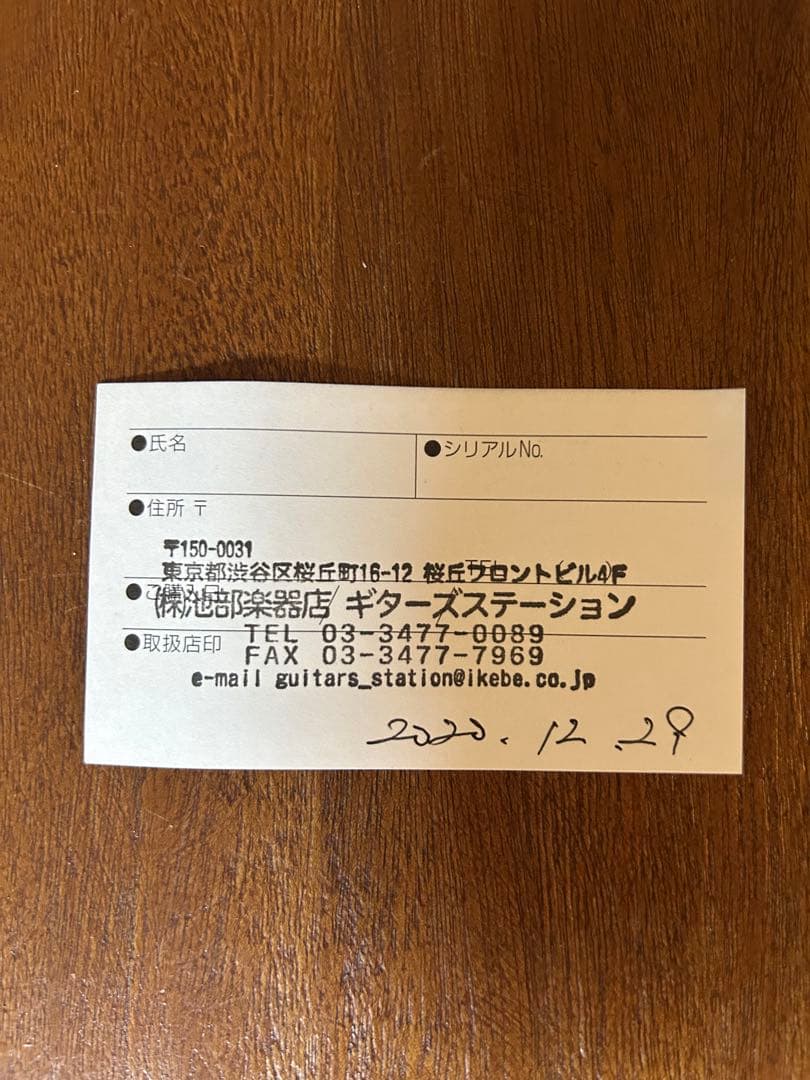 ●氏名 ●シリアルNo.
●住所 〒
〒150-0031
東京都渋谷区桜丘町16-12 桜丘フロントビル4F
TEL
●ご購入日 / /
㈱池部楽器店 ギターズステーション
TEL 03-3477-0089
●取扱店印
FAX 03-3477-7969
e-mail guitars_station@ikebe.co.jp
2020.12.29